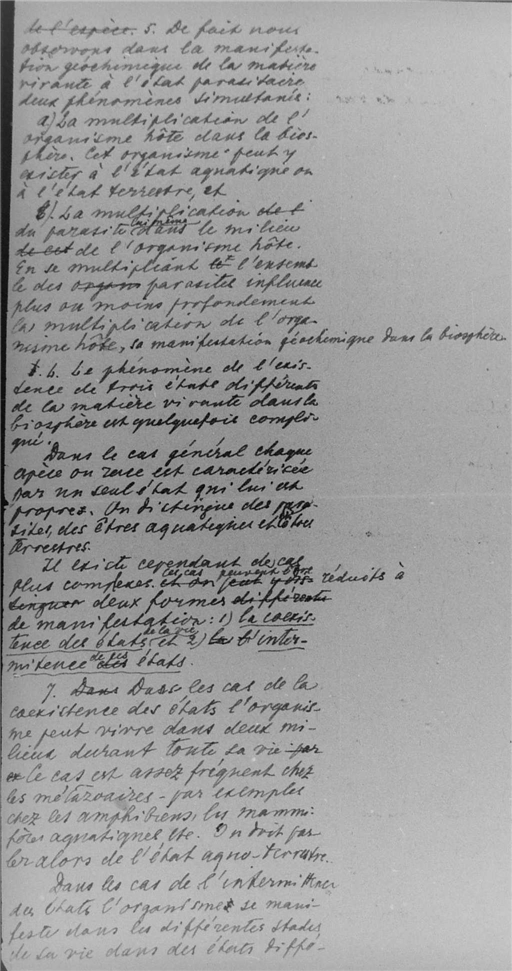 de l'espèce. 5. De fait nous
observons dans la manifesta-
tion géochimique de la matière
vivante à l'état parasitaire
deux phénomènes simultanés:
a) La multiplication de l'
organisme hôte dans la bios-
phère. Cet organisme peut y
exister à l'état aquatique ou
à l'état terrestre, et
b). La multiplication de l'
du parasite lui même dans le milieu
de cet de l'organisme hôte.
En se multipliant et l'ensemb-
le des organis parasites influence
plus ou moins profondement
la multiplication de l'orga-
nisme hôte, sa manifestation géochimique dans la biosphère.
6. Le phénomène de l'exis-
tence de trois états différents
de la matière vivante dans la
biosphère est quelquefois compli-
qué.
Dans le cas général chaque
espèce ou race est caractérisée
par un seul état qui lui est
propres. On distingue des para-
sites, des êtres aquatiques et des êtres
terrestres.
Il existe cependant des cas
plus complexes. Ces cas peuvent être et on peut y dis- réduits à
tinguer deux formes différentes
de manifestation: 1) la coexis-
tence des états de la vie et 2) la l'inter-
mitence de ses des états.
7. Dans Dans les cas de la
coexistence des états l'organis-
me peut vivre dans deux mi-
lieux durant toute sa vie par
ex le cas est assez fréquent chez
les métazoaires - par exemples
chez les amphibiens, les mammi-
fères aquatiques etc. On doit par-
ler alors de l'état aquo-terrestre.
Dans les cas de l'intermittence
des états l'organisme se mani-
feste dans les différentes stades
de sa vie dans des états diffé-